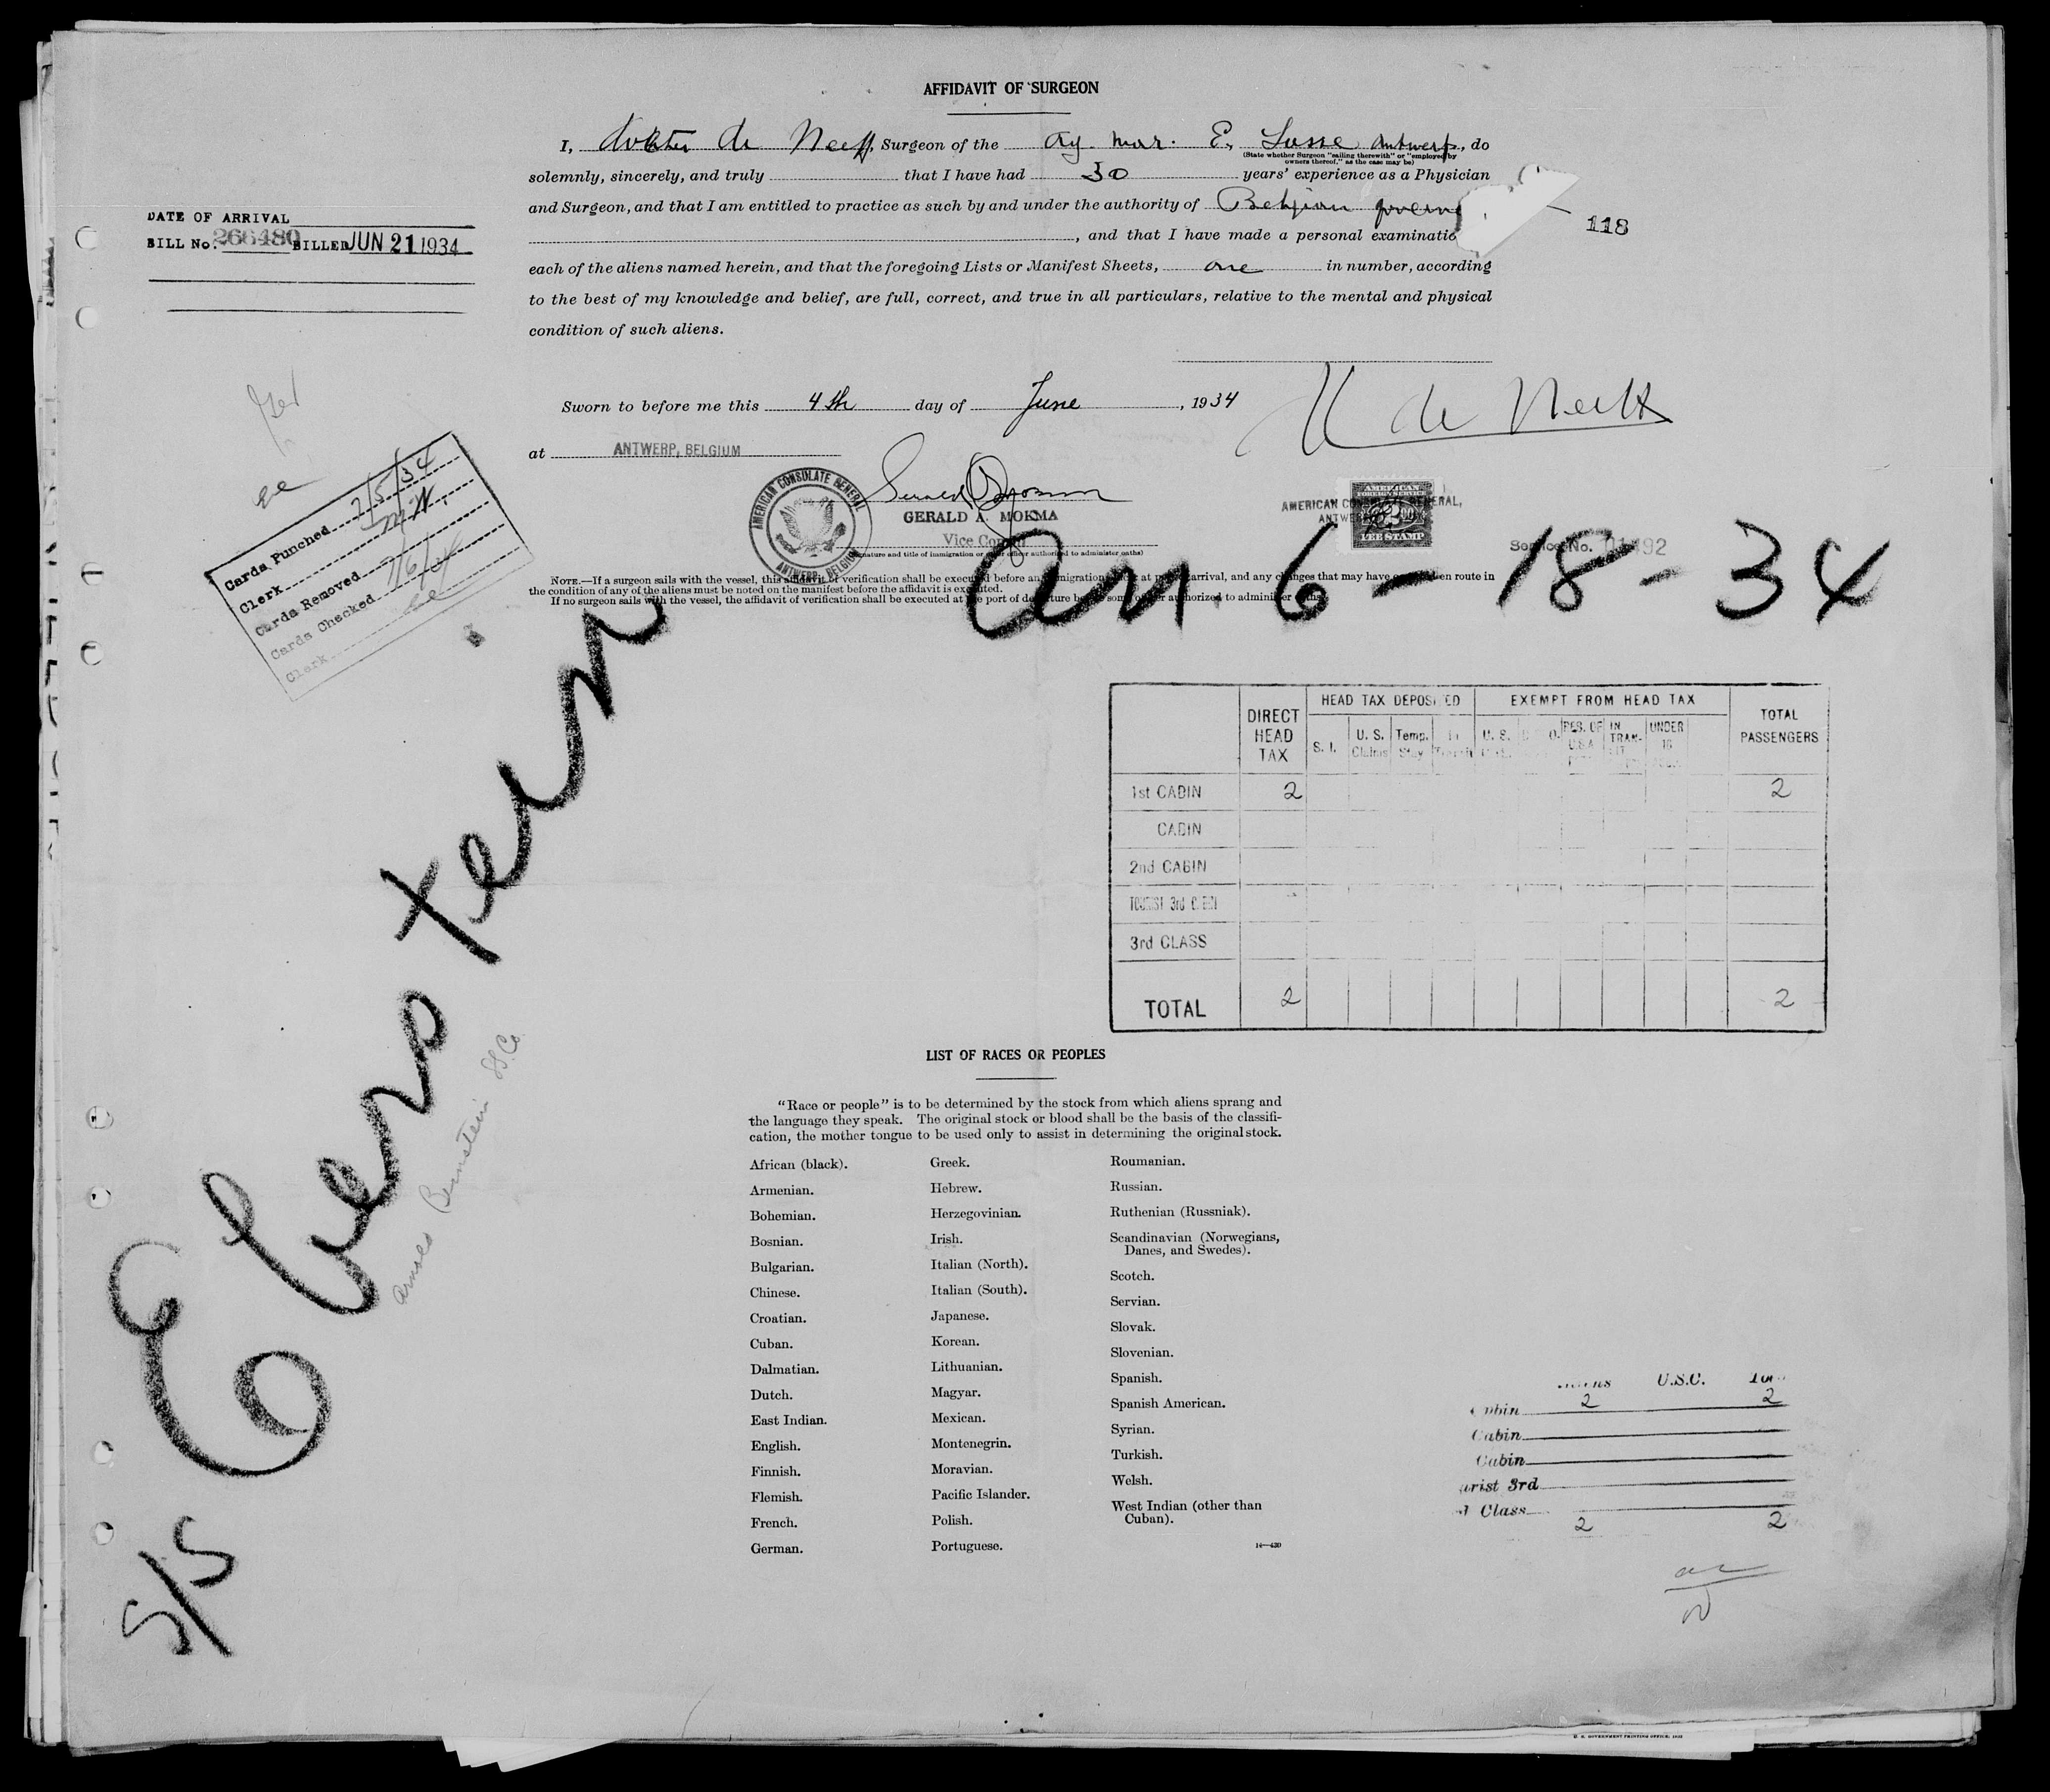 AFFIDAVIT OF SURGEON
I, dokter de Neeff, Surgeon of the Ag. mar. E. Sasse Antwerp, do
(State whether Surgeon "sailing therewith" or "employed by
owners thereof," as the case may be)
solemnly, sincerely, and truly that I have had 30 years' experience as a Physician
and Surgeon, and that I am entitled to practice as such by and under the authority of Belgian govern
, and that I have made a personal examinatio
each of the aliens named herein, and that the foregoing Lists or Manifest Sheets, one in number, according
to the best of my knowledge and belief, are full, correct, and true in all particulars, relative to the mental and physical
condition of such aliens.
118
DATE OF ARRIVAL
BILL No. 266480 BILLED JUN 21 1934
Sworn to before me this 4th day of June, 1934
de Neeff
at ANTWERP, BELGIUM
AMERICAN CONSULATE GENERAL
ANTWERP, BELGIUM
GERALD A. MOKMA
Vice Consul
(Signature and title of immigration or other officer authorized to administer oaths)
AMERICAN CONSULATE GENERAL,
AMERICAN
FOREIGN SERVICE
FEE STAMP
Service No.
NOTE.—If a surgeon sails with the vessel, this affidavit of verification shall be executed before an immigration officer at port of arrival, and any changes that may have occurred en route in
the condition of any of the aliens must be noted on the manifest before the affidavit is executed.
If no surgeon sails with the vessel, the affidavit of verification shall be executed at the port of departure before some officer authorized to administer oaths.
Cards Punched 7/5/34
Clerk M.W.
Cards Removed
Cards Checked 7/6/34
Clerk
3
an. 6-18-34
S/S Eberstein
Arnold Bernstein SS. Co
DIRECT HEAD TAX
HEAD TAX DEPOSITED
EXEMPT FROM HEAD TAX
TOTAL PASSENGERS
S. I. U. S. Claims Temp. Stay U. S. RES. OF U.S.A. IN TRAN- SIT UNDER 16
1st CABIN 2 2
CABIN
2nd CABIN
TOURIST 3rd CABIN
3rd CLASS
TOTAL 2 2
LIST OF RACES OR PEOPLES
"Race or people" is to be determined by the stock from which aliens sprang and
the language they speak. The original stock or blood shall be the basis of the classifi-
cation, the mother tongue to be used only to assist in determining the original stock.
African (black).
Armenian.
Bohemian.
Bosnian.
Bulgarian.
Chinese.
Croatian.
Cuban.
Dalmatian.
Dutch.
East Indian.
English.
Finnish.
Flemish.
French.
German.
Greek.
Hebrew.
Herzegovinian.
Irish.
Italian (North).
Italian (South).
Japanese.
Korean.
Lithuanian.
Magyar.
Mexican.
Montenegrin.
Moravian.
Pacific Islander.
Polish.
Portuguese.
Roumanian.
Russian.
Ruthenian (Russniak).
Scandinavian (Norwegians,
Danes, and Swedes).
Scotch.
Servian.
Slovak.
Slovenian.
Spanish.
Spanish American.
Syrian.
Turkish.
Welsh.
West Indian (other than
Cuban).
14—430
U.S.C.
Cabin 2 2
Cabin
Cabin
urist 3rd
Class
2 2
U. S. GOVERNMENT PRINTING OFFICE: 1932